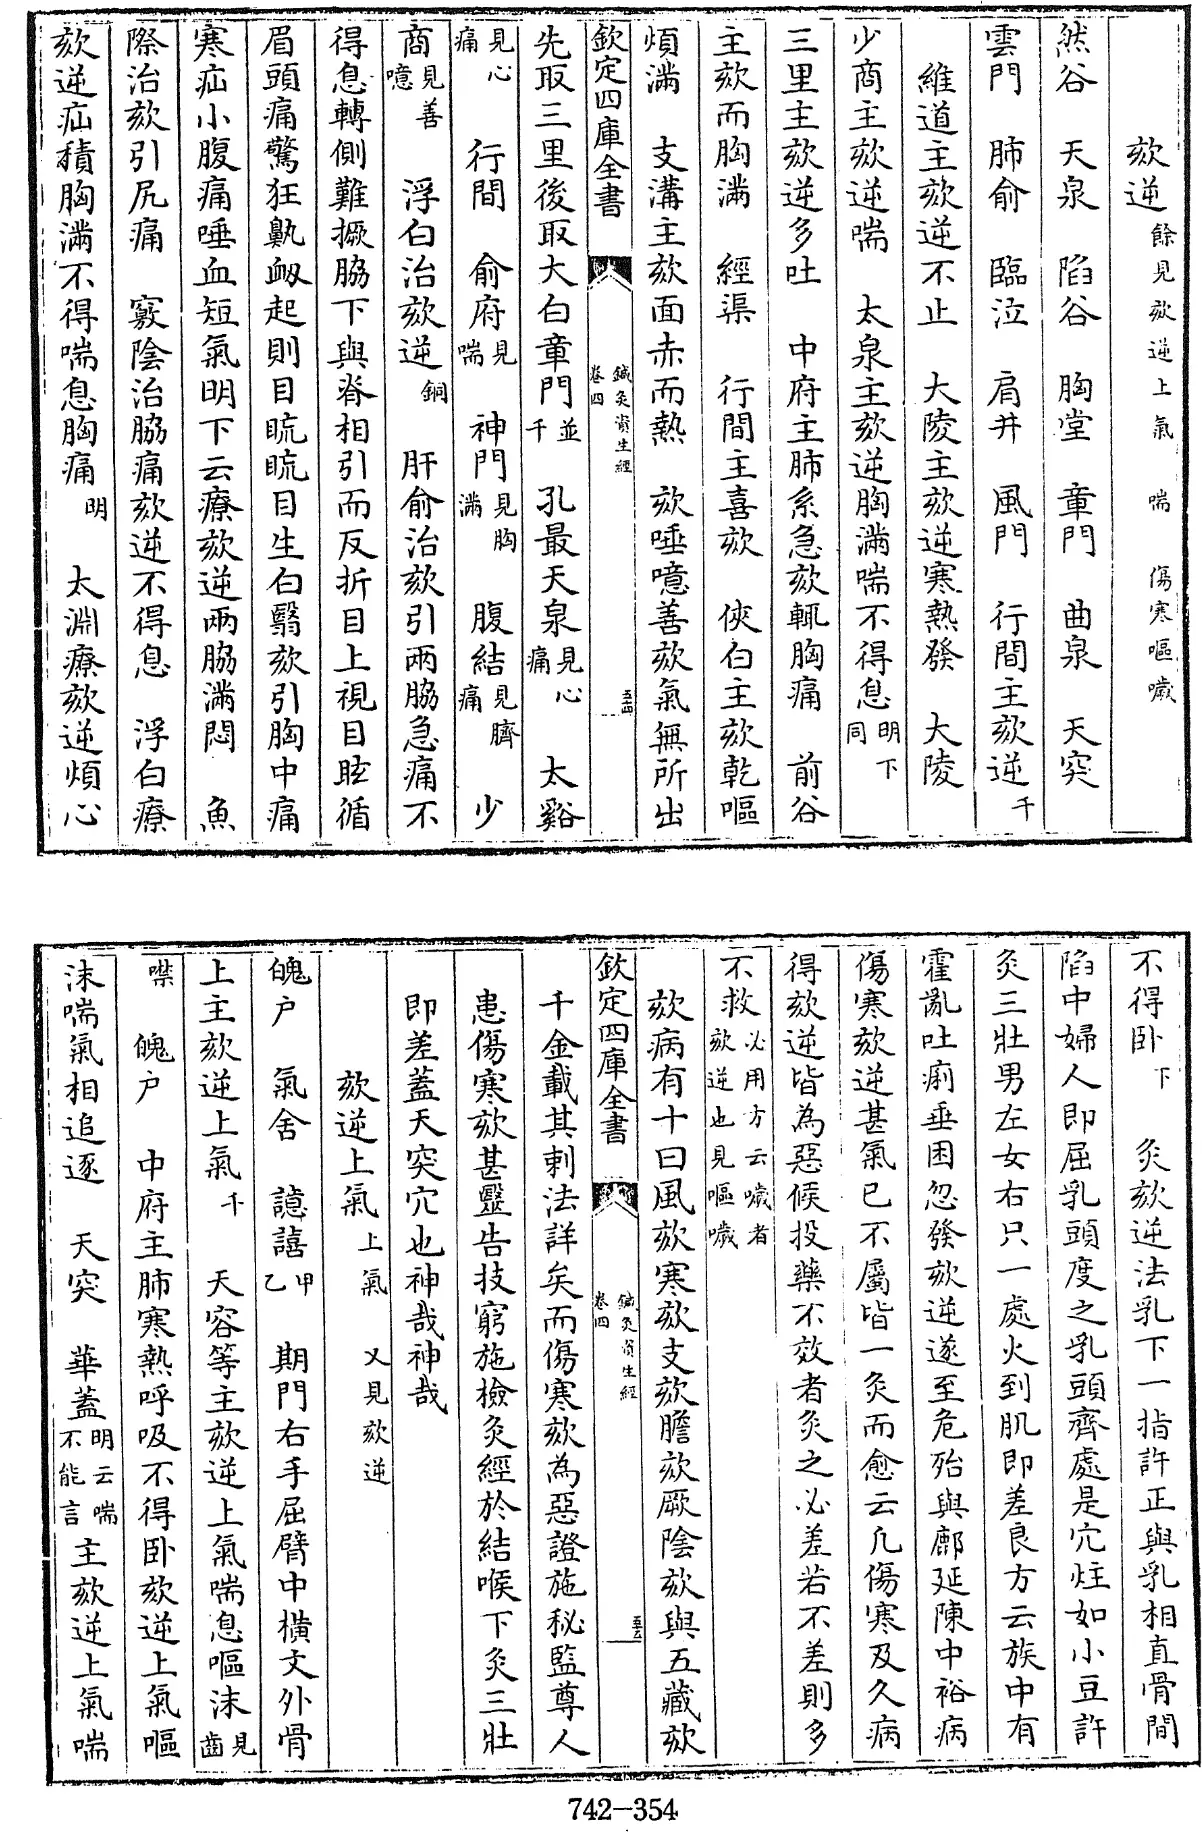 欬逆餘見欬逆上氣 喘 傷寒嘔噦
然谷 天泉 陷谷 胸堂 章門 曲泉 天突
雲門 肺俞 臨泣 肩井 風門 行間主欬逆千
維道主欬逆不止 大陵主欬逆寒熱發 大陵
少商主欬逆喘 太泉主欬逆胸滿喘不得息明下同
三里主欬逆多吐 中府主肺系急欬輒胸痛 前谷
主欬而胸滿 經渠 行間主喜欬 俠白主欬乾嘔
煩滿 支溝主欬面赤而熱 欬唾噫善欬氣無所出
欽定四庫全書 鍼灸資生經卷四 五十四
先取三里後取大白章門並千 孔最天泉見心痛 太谿
見心痛 行間 俞府見喘 神門見胸滿 腹結見臍痛 少
商見善噫 浮白治欬逆銅 肝俞治欬引兩脇急痛不
得息轉側難撅脇下與脊相引而反折目上視目眩循
眉頭痛驚狂鼽衂起則目䀮䀮目生白翳欬引胸中痛
寒疝小腹痛唾血短氣明下云療欬逆兩脇滿悶 魚
際治欬引尻痛 竅陰治脇痛欬逆不得息 浮白療
欬逆疝積胸滿不得喘息胸痛明 太淵療欬逆煩心
不得卧下 灸欬逆法乳下一指許正與乳相直骨間
陷中婦人即屈乳頭度之乳頭齊處是穴炷如小豆許
灸三壯男左女右只一處火到肌即差良方云族中有
霍亂吐痢垂困忽發欬逆遂至危殆與鄜延陳中裕病
傷寒欬逆甚氣已不屬皆一灸而愈云凡傷寒及久病
得欬逆皆為惡候投藥不效者灸之必差若不差則多
不救必用方云噦者欬逆也見嘔噦
欬病有十曰風欬寒欬支欬膽欬厥陰欬與五藏欬
欽定四庫全書 鍼灸資生經卷四 五十五
千金載其刺法詳矣而傷寒欬為惡證施秘監尊人
患傷寒欬甚醫告技窮施檢灸經於結喉下灸三壯
即差蓋天突穴也神哉神哉
欬逆上氣上氣 又見欬逆
魄户 氣舍 譩譆甲乙 期門右手屈臂中橫文外骨
上主欬逆上氣千 天容等主欬逆上氣喘息嘔沫見齒
噤 魄户 中府主肺寒熱呼吸不得卧欬逆上氣嘔
沫喘氣相追逐 天突 華蓋明云喘不能言主欬逆上氣喘
742-354